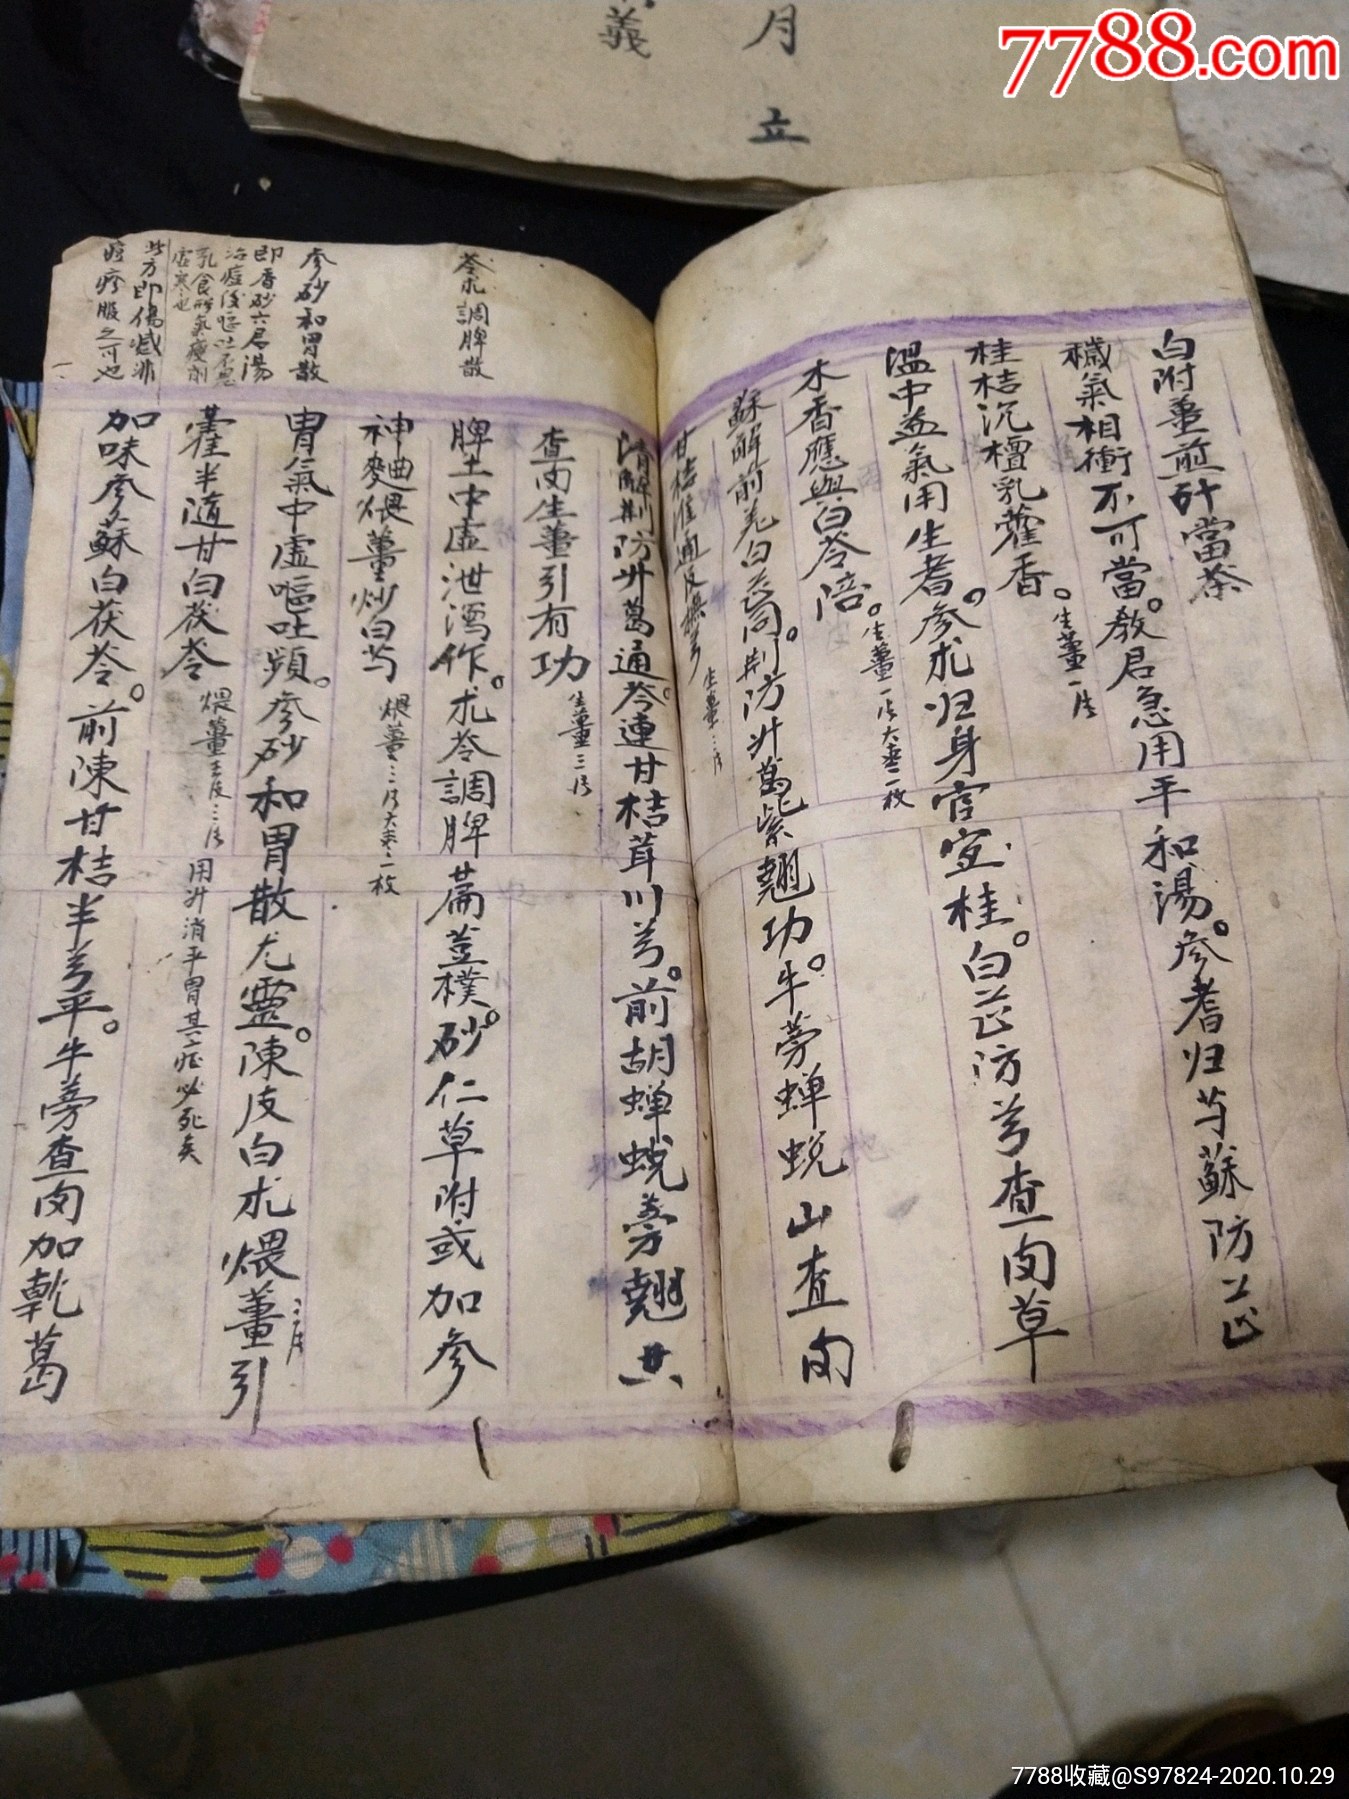 7788.com
月立
義
白附薑煎汁當茶
穢氣相衝不可當。教君急用平和湯。參耆归芍蘇防芷
桂桔沉檀乳藿香。生薑一片
溫中益氣用生耆。參朮归身官宜桂。白芷防芎查肉草
木香應與白苓陪。生薑一片大枣二枚
蘇解前羌白芷同。荆防升葛紫翘功。牛蒡蝉蜕山查肉
甘桔 通 生薑三片
清解荆防升葛通。芩連甘桔茸川芎。前胡蝉蜕蒡翹共
查肉生薑引有功 生薑三片
苓朮調脾散
脾土中虛泄瀉作。朮苓調脾萹荳樸。砂仁草附或加參
神麯煨薑炒白芍 煨薑三片大枣二枚
參砂和胃散
即香砂六君湯
治痘後嘔吐
胃氣中虛嘔吐頻。參砂和胃散尤靈。陳皮白朮煨薑引 三片
藿半隨甘白茯苓 煨薑三片 用升消平胃其症必死矣
此方即傷
痘疹服之可也
加味參蘇白茯苓。前陳甘桔半芎平。牛蒡查肉加乾葛
7788收藏@S97824-2020.10.29